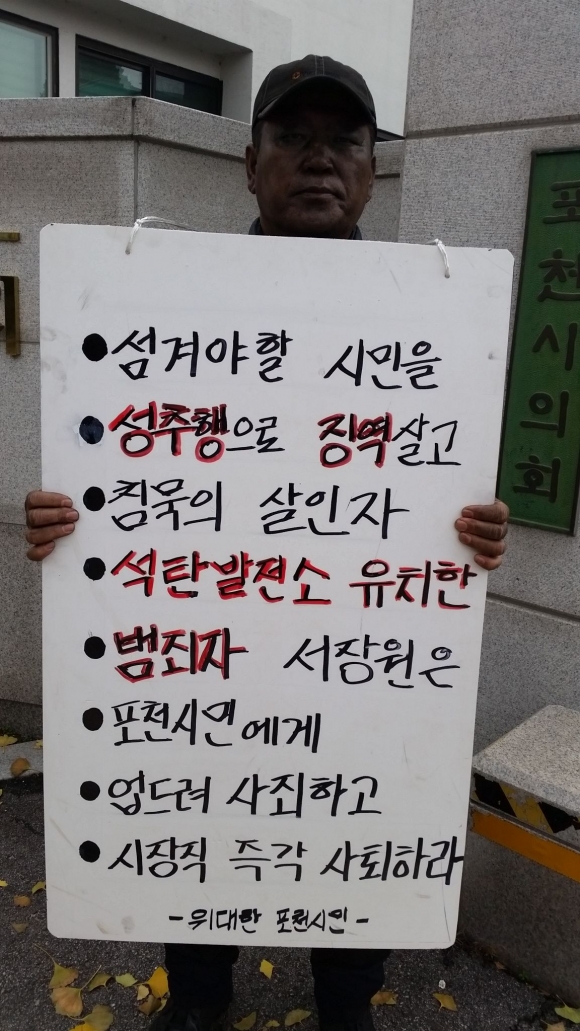 ● 섬겨야할 시민을
● 성추행으로 징역살고
● 침묵의 살인자
● 석탄발전소 유치한
● 범죄자 서장원은
● 포천시민에게
● 업드려 사죄하고
● 시장직 즉각 사퇴하라
- 위대한 포천시민 -
포천시의회